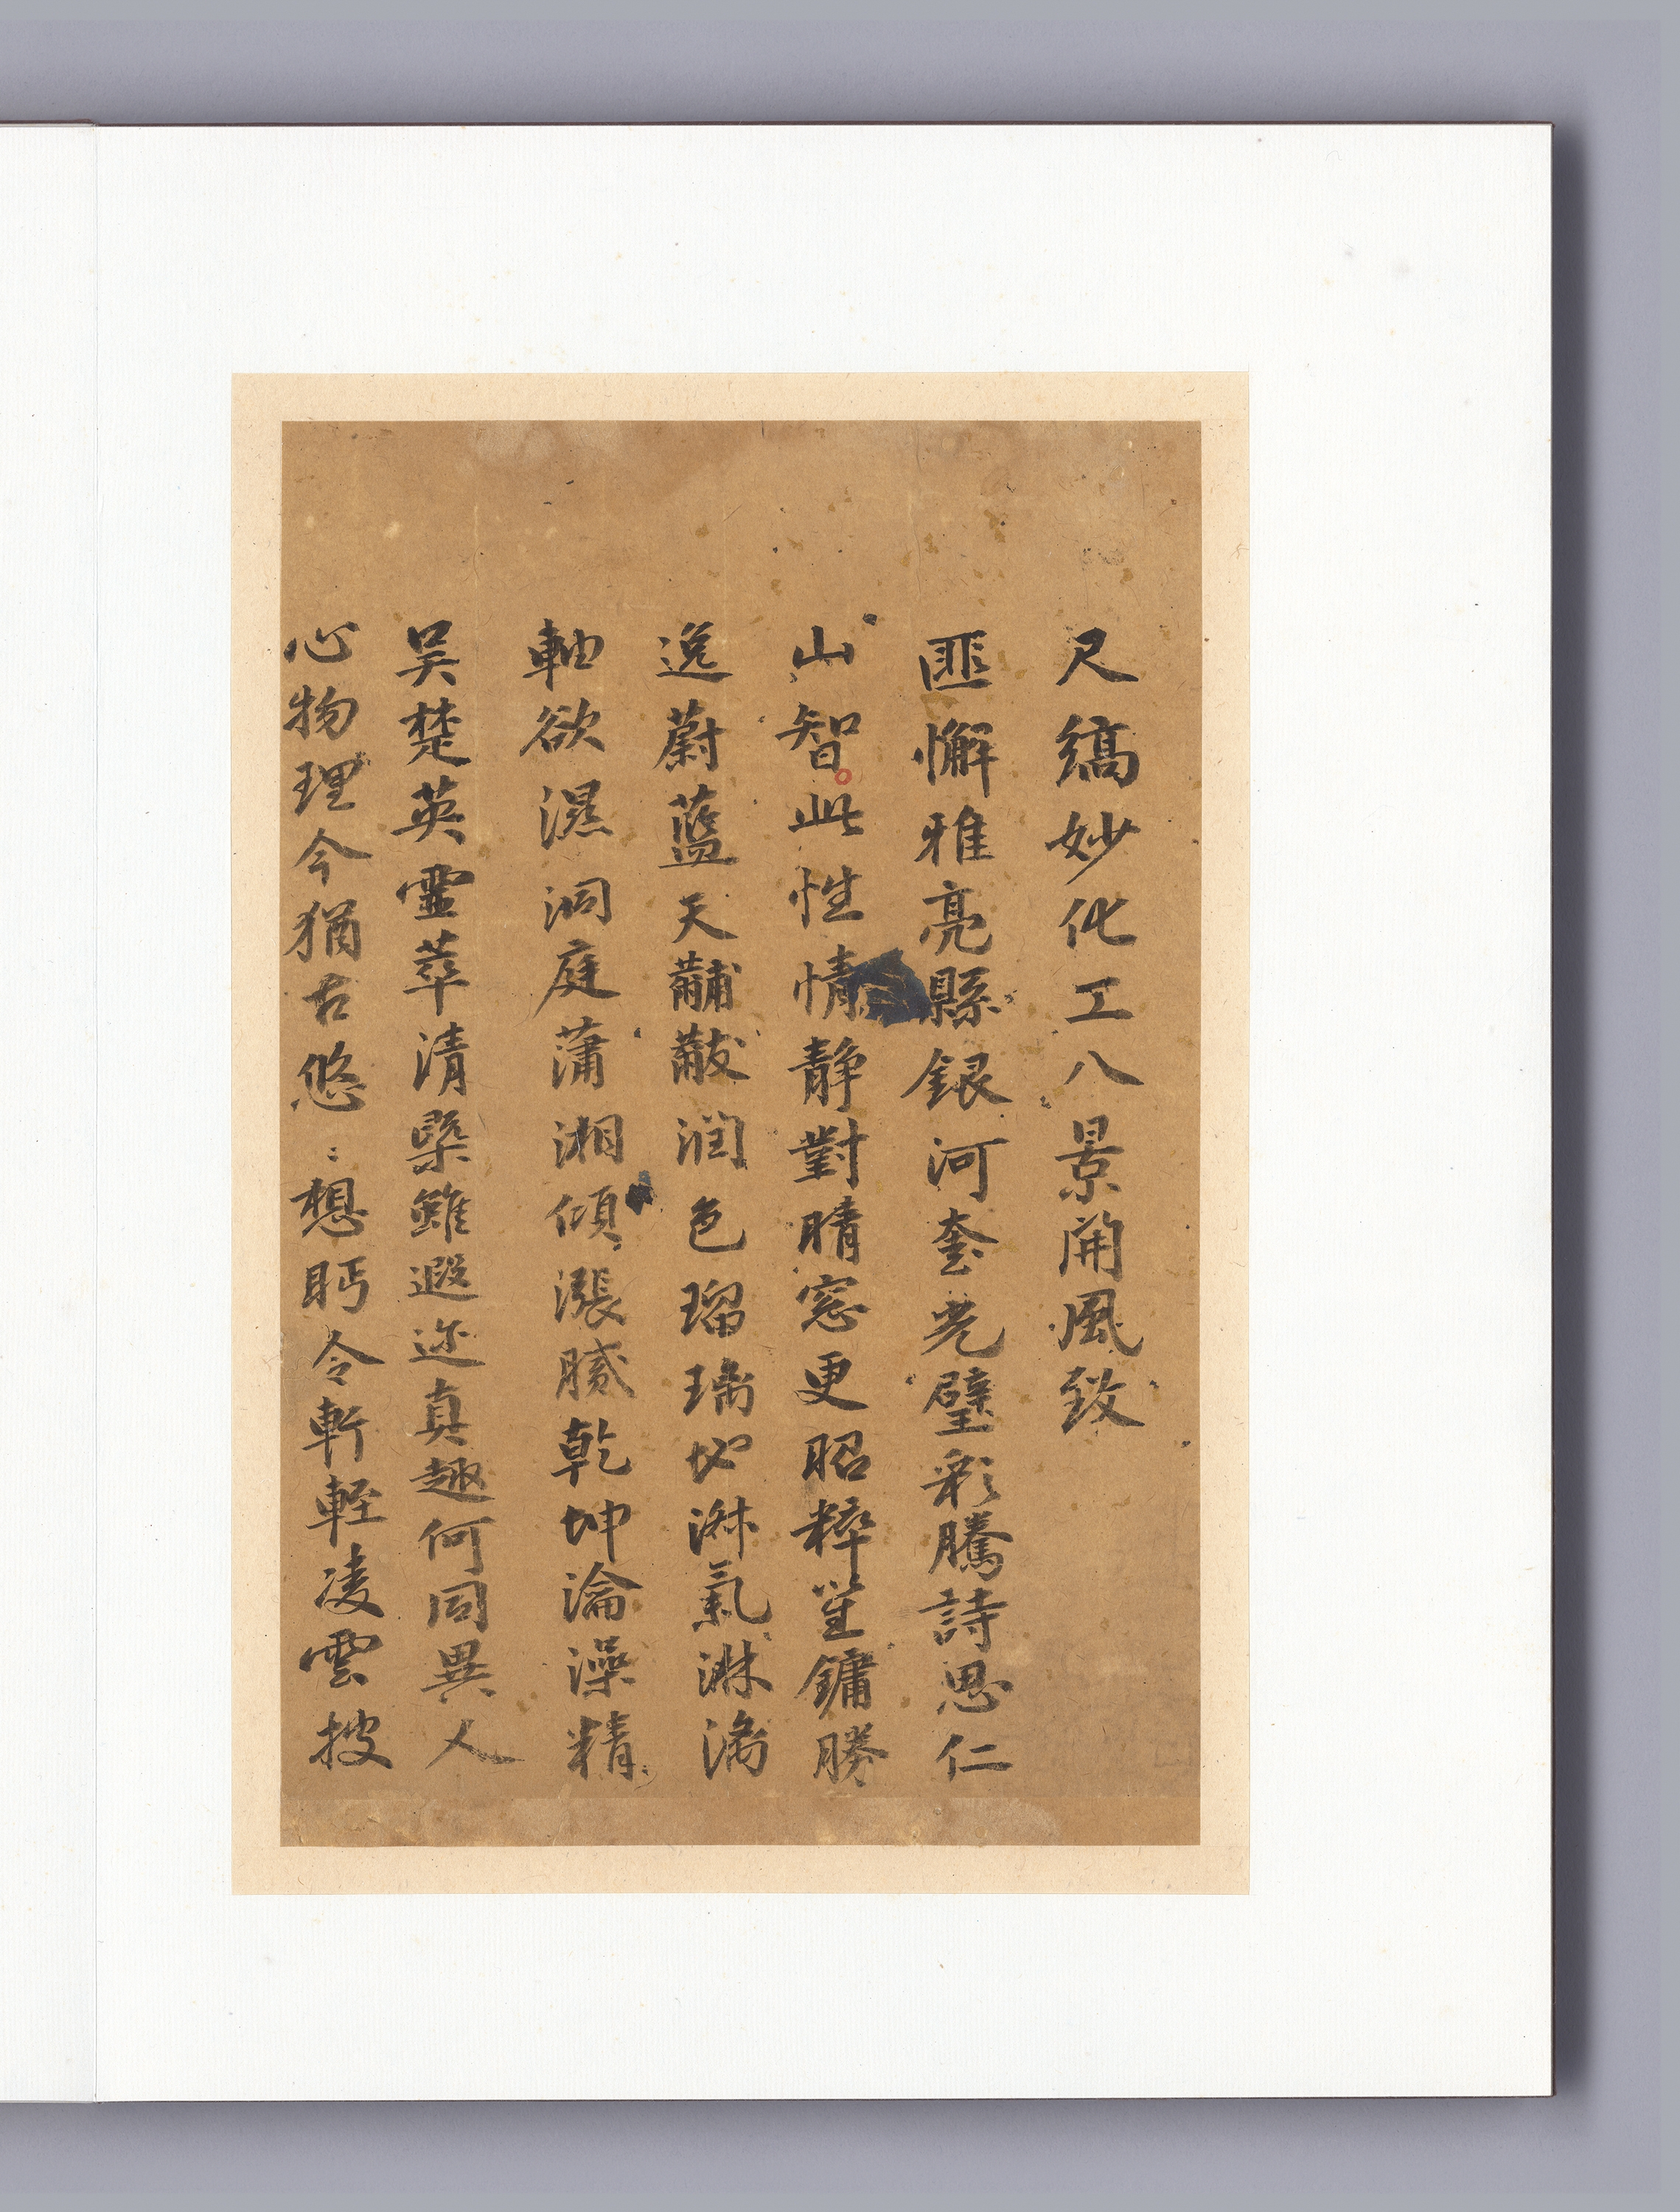 尺縞妙化工八景開風致
匪懈雅亮縣銀河奎光璧彩騰詩思仁
山智此性情静對晴窓更昭粹笙鏞勝
逸蔚藍天黼黻潤色瑠璃地淋氣淋漓
軸欲濕洞庭蕭湘傾漲膩乾坤淪澡精
吴楚英靈萃清槩雖遐迩真趣何同異人
心物理今猶古悠〻想眄令軒輊凌雲披